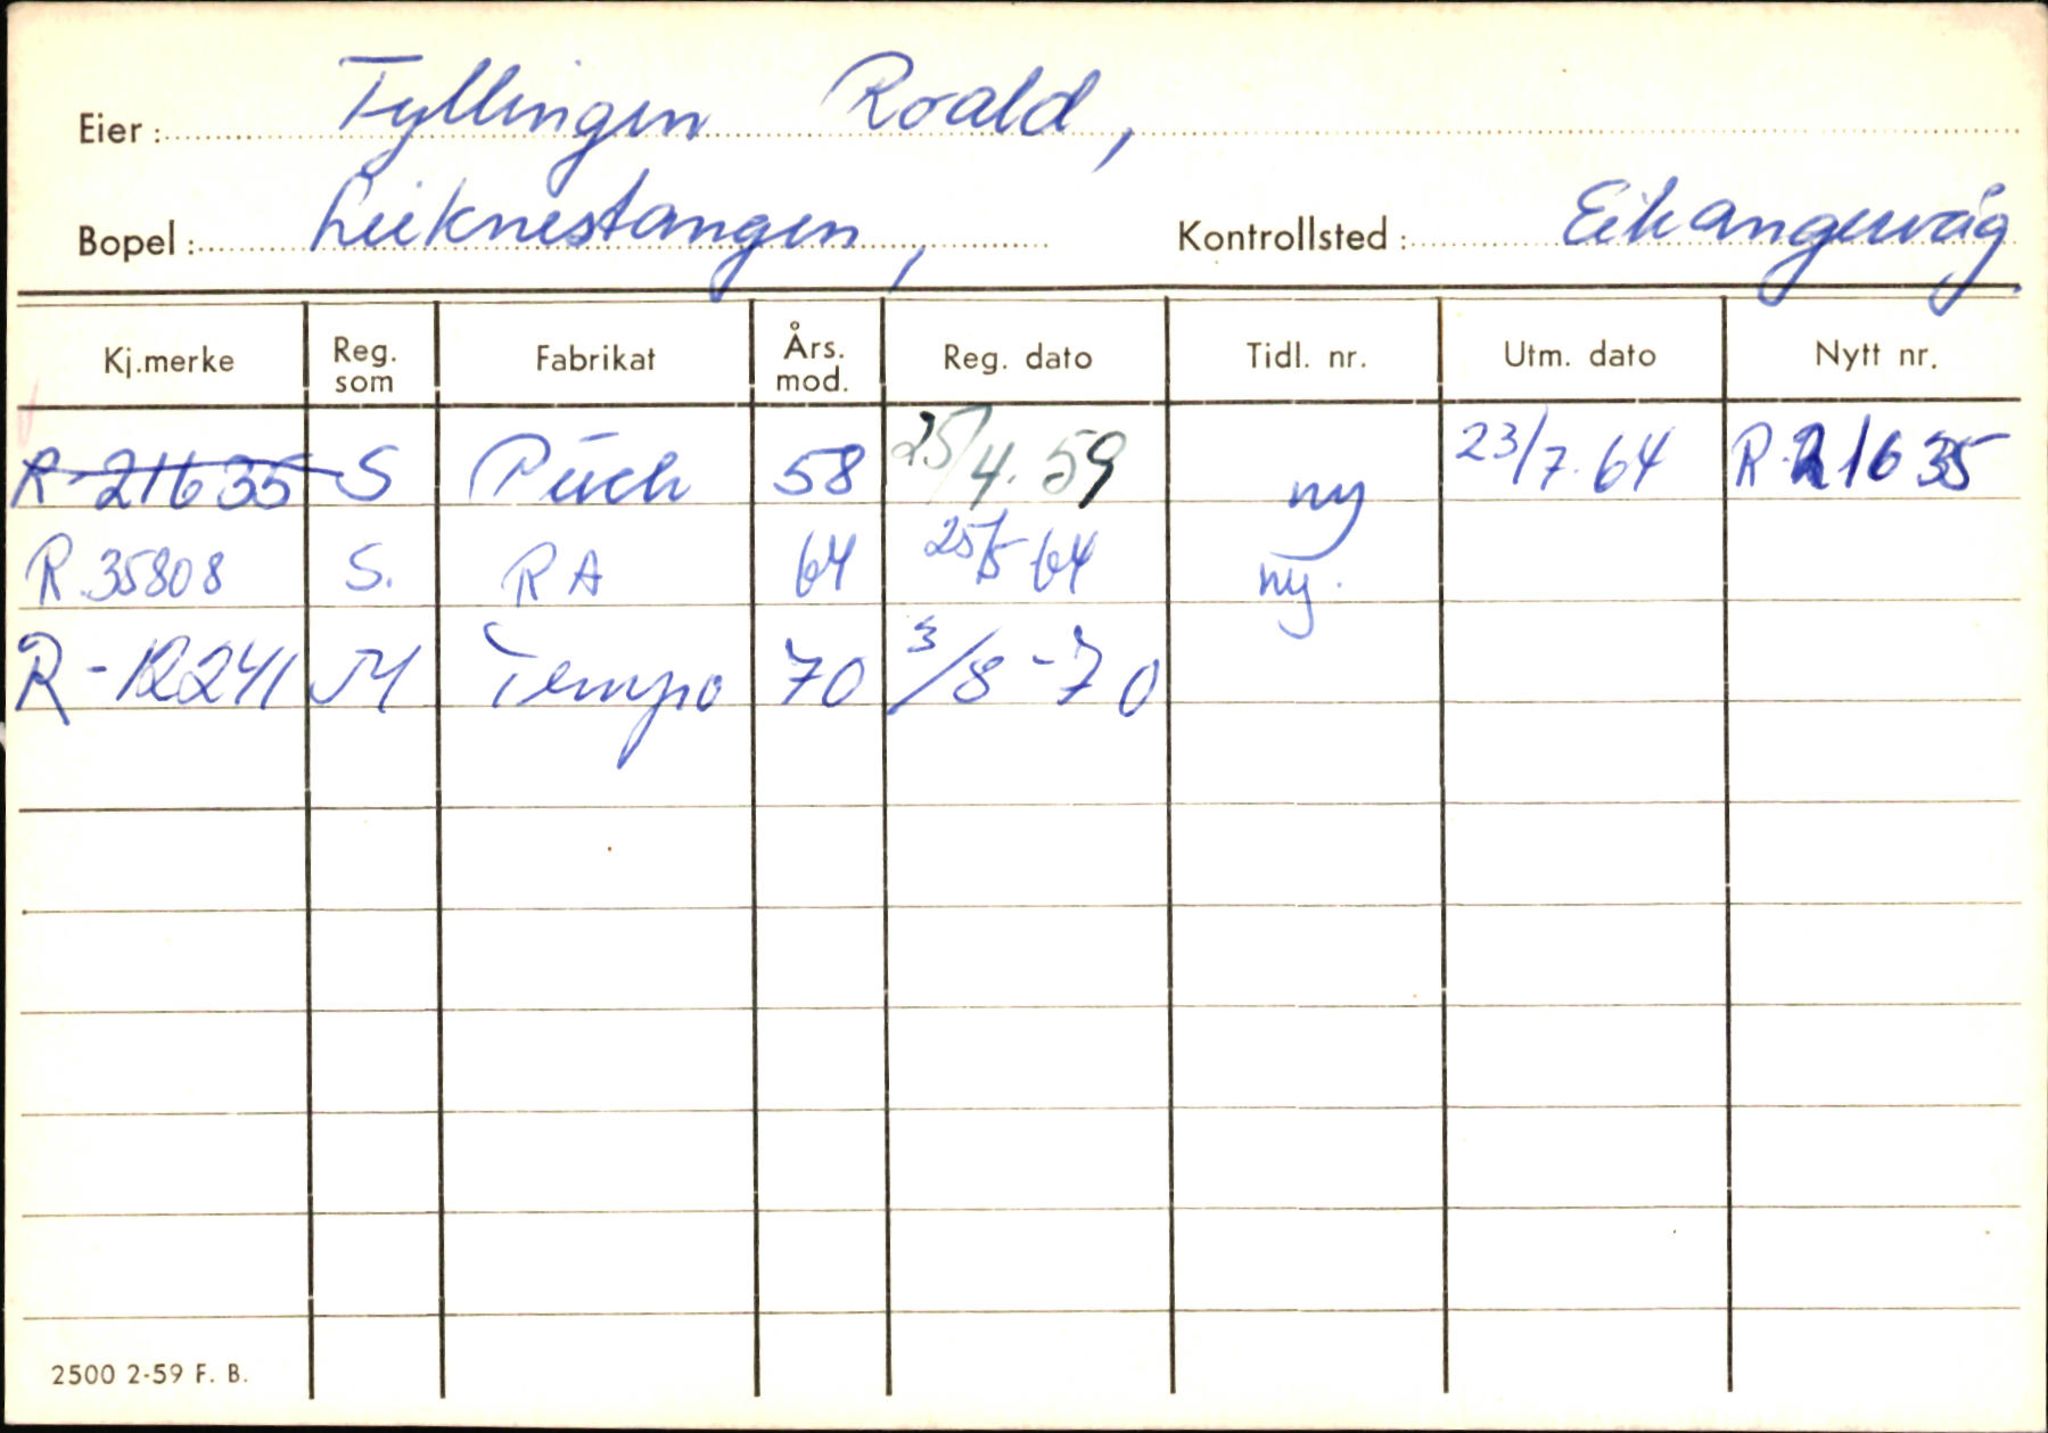 Eier: Tyllingen Roald,
Bopel: Leiknestangen, Kontrollsted: Eikangervåg
Kj.merke Reg. som Fabrikat Års. mod. Reg. dato Tidl. nr. Utm. dato Nytt nr.
R-21635 S Puch 58 25/4.59 ny 23/7.64 R.21635
R.35808 S. RA 64 25/5 64 ny.
R-12241 M Tempo 70 3/8-70
2500 2-59 F. B.